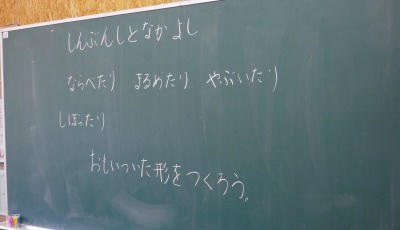 しんぶんしとなかよし
ならべたり まるめたり やぶいたり
しぼったり
おもいついた形をつくろう。